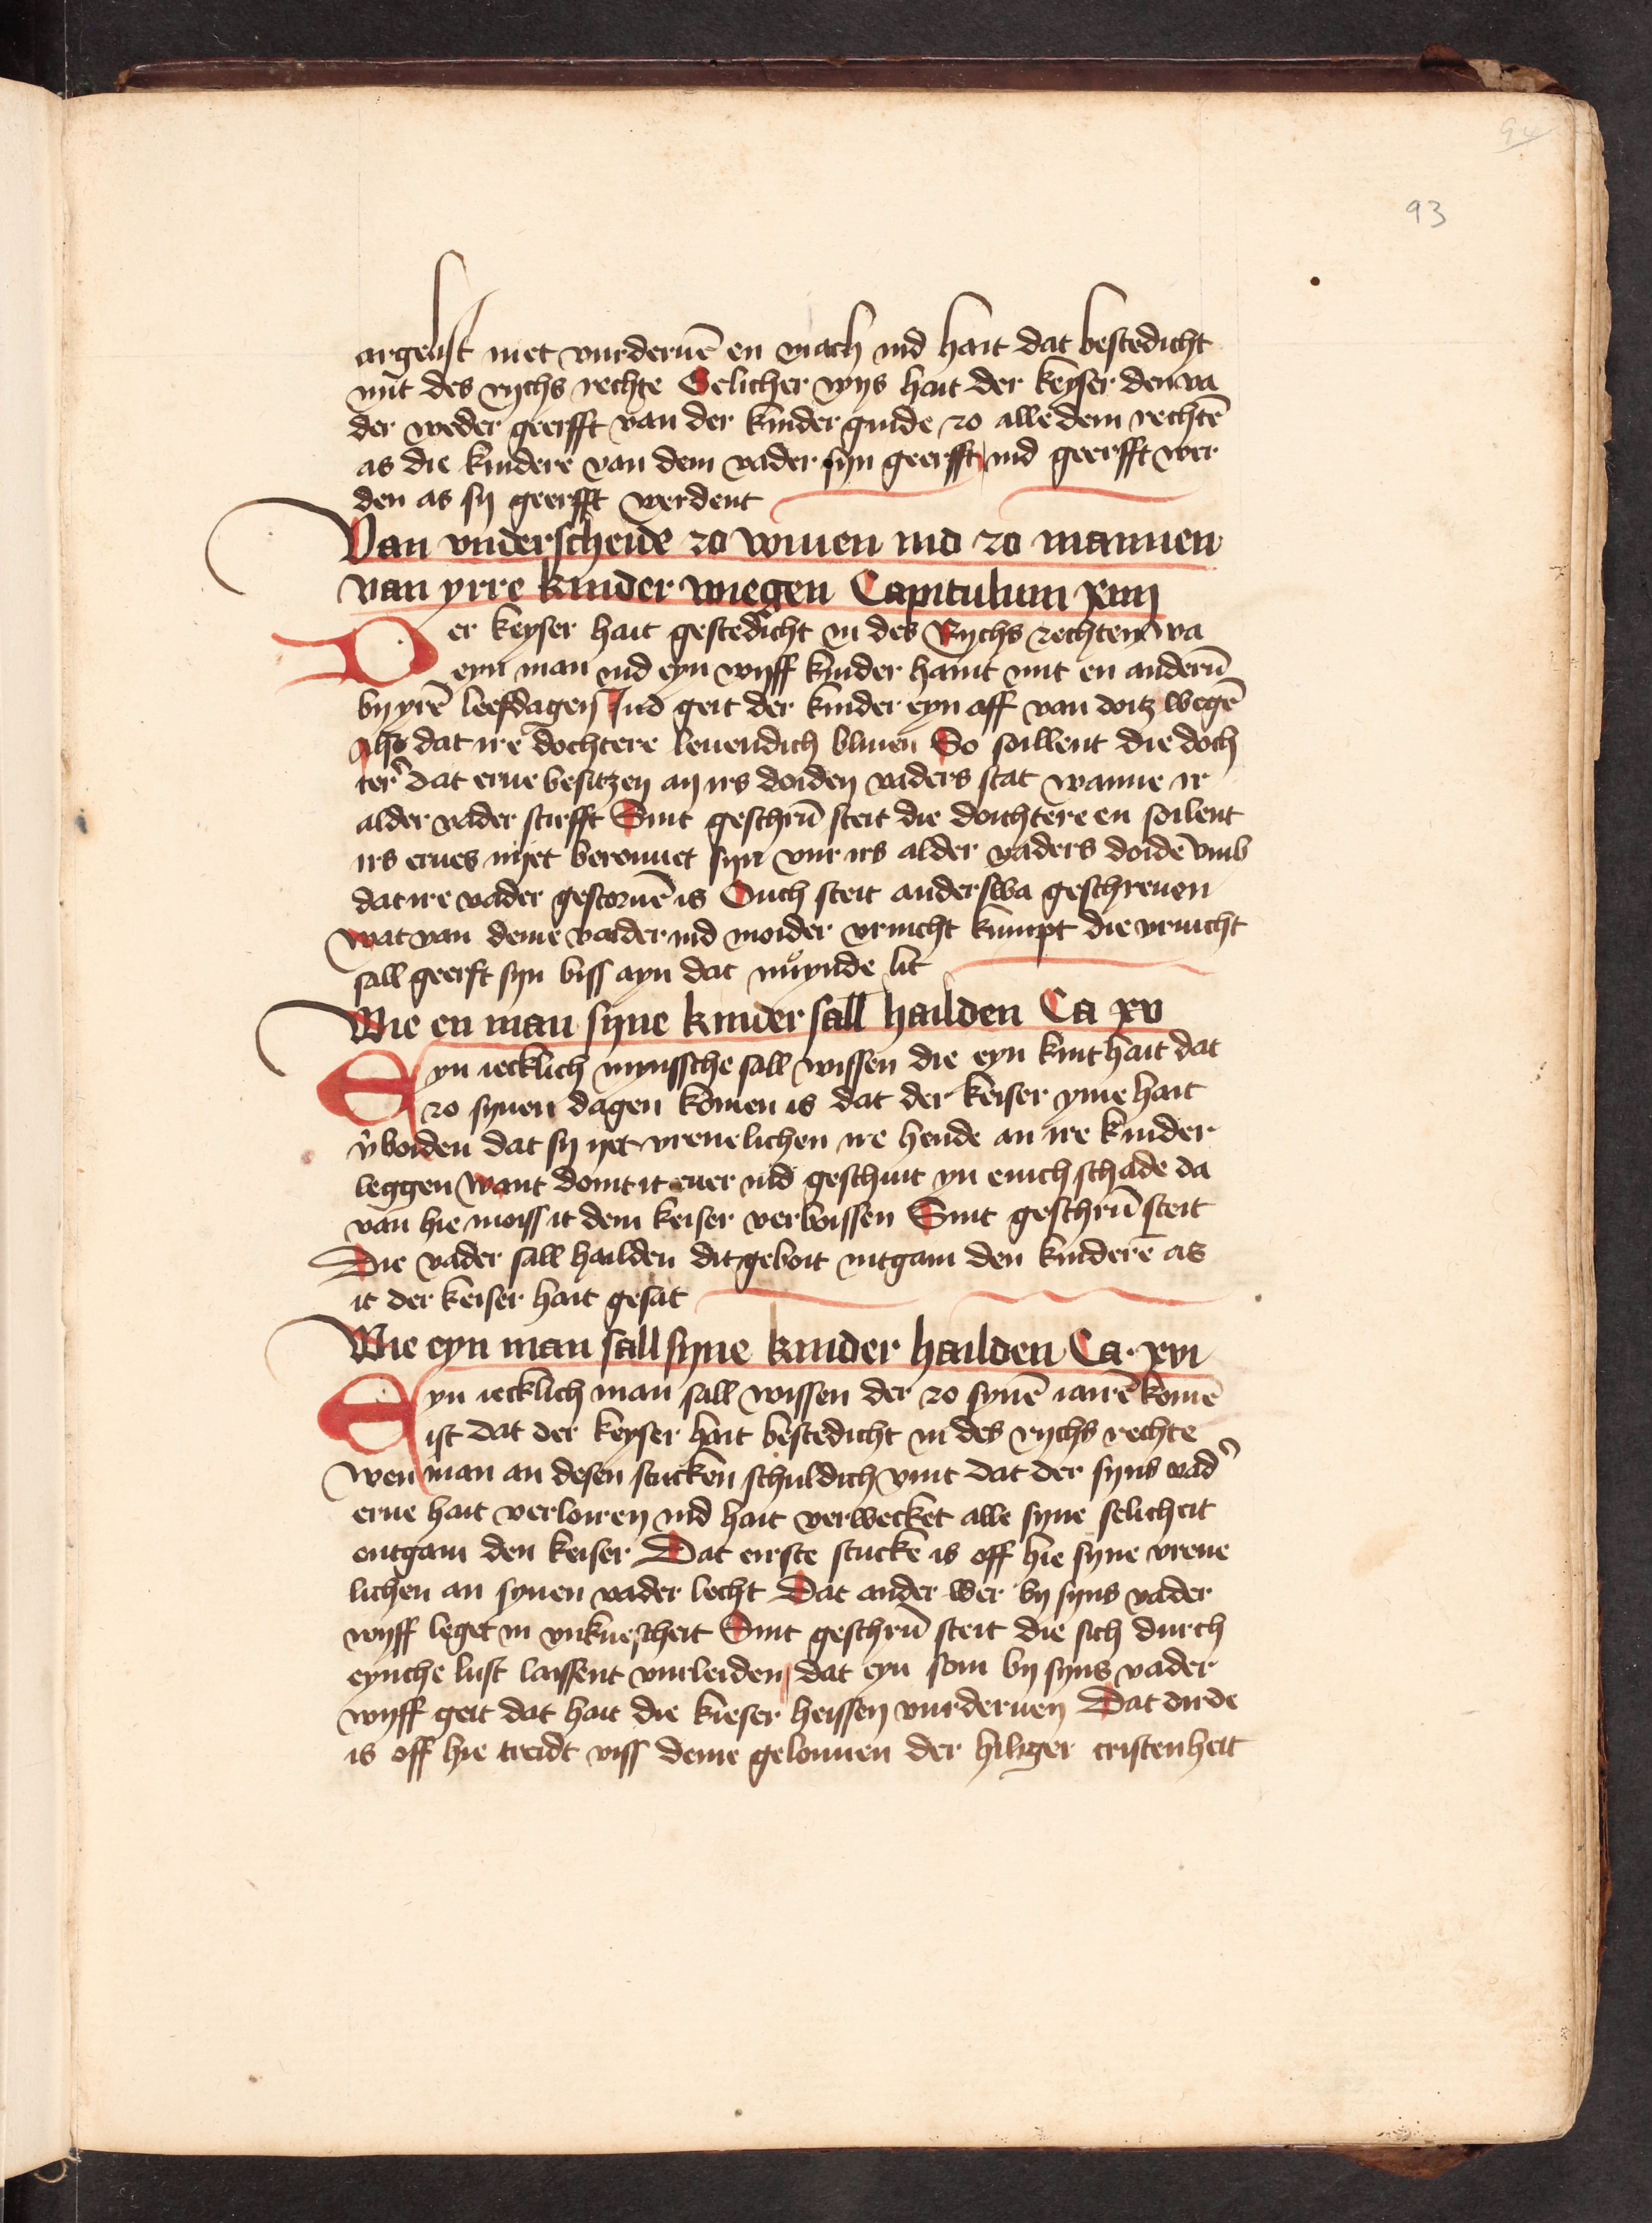 94
93
argelist niet vurderuē en mach ind hait dat bestedicht
mit des rychs rechte Gelicher wys hait der keyser den va
der weder geerfft van der kinder guide zo alle dem rechtē
as die kindere van dem vader syn geerfft ind geerfft wer
den as sy geerfft werdent
Van vnderscheide zo wiuen ind zo mannen
van yrre kinder wiegen Capitulum xiiij
Der keyser hait gestedicht in des Rychs rechten wa
eyn man ind eyn wyff kinder haint mit en anderū
by yrē leefdagen Ind geit der kinder eyn aff van doitz wegē
Also dat ire dochtere leuendich bliuen So soillent die doch
ter̉ dat erue besitzen an irs doiden vaders stat wanne ir
alder vader stirfft Sint geschrū steit die doichtere en soilent
irs erues nyet berouuet syn vur irs alder vaders doidē vmb
dat ire vader gestoruē is Ouch steit anderswa geschreuen
wat van deme vader ind moider vrucht kumpt die vrucht
sall geerft syn biss ayn dat nuͦynde lit
Wie en man syne kinder sall hailden Ca xv
Eyn iecklich mynssche sall wissen die eyn kint hait dat
zo synen dagen komen is dat der keiser yme hait
v̉boiden dat sy yet vreuelichen ire hende an ire kinder
leggen Want doint it euer ind geschuit yn enich schade da
van hie moiss it dem keiser verboissen Sint geschrū steit
Die vader sall hailden dit geboit intgain den kinderē as
it der keiser hait gesat
Wie eyn man sall syne kinder hailden Ca. xvi
Eyn iecklich man sall wissen der zo synē iairē komē
ist dat der keyser hait bestedicht in des rychs rechte
wen man an desen stucken schuldich vint dat der syns vad̉
erue hait verloiren ind hait verwecket alle syne selicheit
ontgain den keiser Dat eirste stucke is off hie syne vreue
lichen an synen vader lecht Dat ander wer by syns vader
wyff leget in vnkuescheit Sint geschrū steit die sich durch
eynche lust laissent vurleiden dat eyn son by syns vader
wyff geit dat hait die kieser heissen vurderuen Dat dirde
is off hie treidt viss deme gelouuen der hilger cristenheit